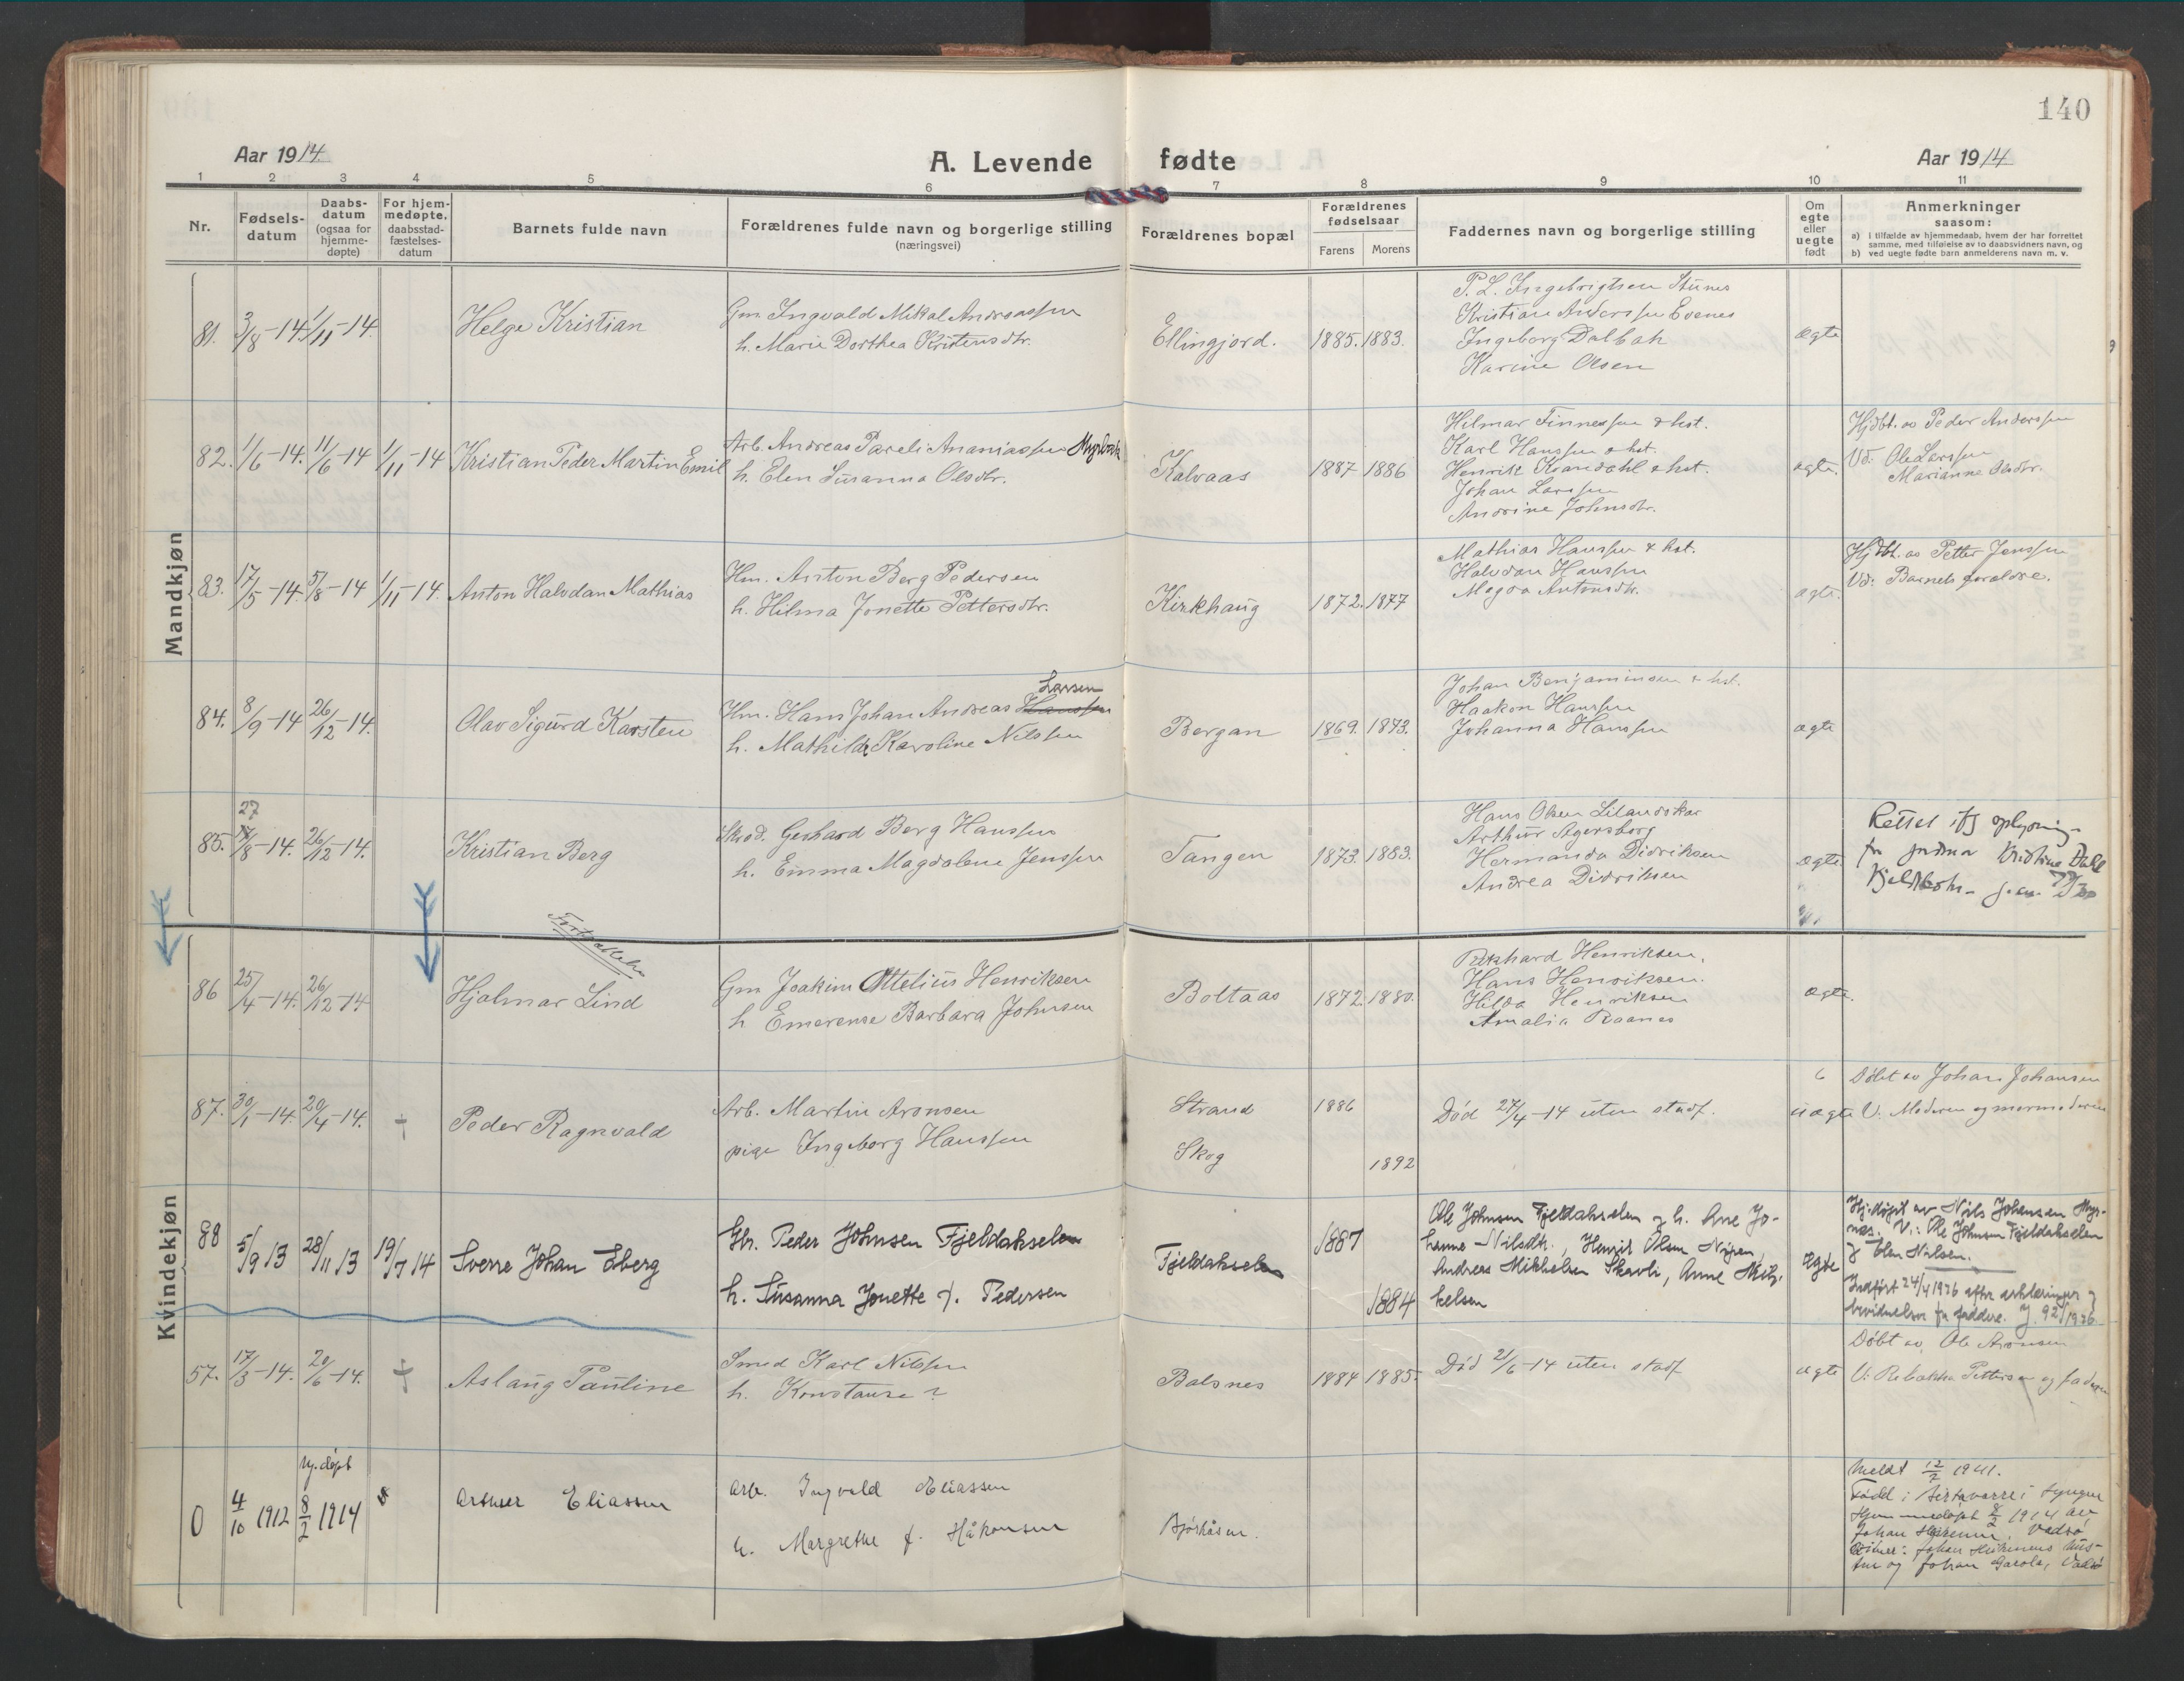 140
Aar 1914
A. Levende fødte
Aar 1914
1 2 3 4 5 6 7 8 9 10 11
Nr.
Fødsels-
datum
Daabs-
datum
(ogsaa for
hjemme-
døpte)
For hjem-
medøpte,
daabsstad-
fæstelses-
datum
Barnets fulde navn
Forældrenes fulde navn og borgerlige stilling
(næringsvei)
Forældrenes bopæl
Forældrenes
fødselsaar
Farens Morens
Faddernes navn og borgerlige stilling
Om
egte
eller
uegte
født
Anmerkninger
saasom:
a) i tilfælde av hjemmedaab, hvem der har forrettet
samme, med tilføielse av to daabsvidners navn, og
b) ved uegte fødte barn anmelderens navn m. v.
Mandkjøn
81. 3/8-14. 1/11-14. Helge Kristian
Gm. Ingvald Mikal Andreassen
h. Marie Dorthea Kristensdtr.
Ellingjord. 1885. 1883.
P. L. Ingebrigtsen Stunes
Kristian Anderssen Evenes
Ingeborg Dalbak
Karine Olsen
ægte
82. 1/6-14. 11/6-14 1/11-14 Kristian Peder Martin Emil
Arb. Andreas Pareli Ananiassen Myrbak
h. Elen Susanna Olsdtr.
Kalvaas 1887 1886
Hilmar Finnessen & hst.
Karl Hanssen & hst.
Henrik & hst.
Johan Larssen
Andrine Johnsdtr.
ægte.
Hjdbt. av Peder Anderssen
Vd: Ole Larssen
Marianne Olsdtr.
83. 17/5-14. 5/8-14 1/11-14. Anton Halvdan Mathias
Hm. Anton Berg Pedersen
h. Hilma Jonette Pettersdtr.
Kirkhaug 1872. 1877
Mathias Hanssen & hst.
Halvdan Hanssen
Magda Antonsdtr.
ægte.
Hjdbt. av Petter Jenssen
Vd: Barnets forældre.
84. 8/9-14 26/12-14. Olav Sigurd Karsten
Larsen
Hm. Hans Johan Andreas Hanssen
h. Mathilde Karoline Nilssen
Bergan 1869. 1873.
Johan Benjaminsen & hst.
Haakon Hanssen
Johanna Hanssen
ægte
27
85. 17/8-14. 26/12-14. Kristian Berg
Skræd. Gerhard Berg Hanssen
h. Emma Magdalene Jenssen
Tangen 1873. 1883.
Hans Olsen Lilandskar
Arthur Agersborg
Hermanda Didriksen
Andrea Didriksen
ægte.
Rettet iflg oplysning
fra Kristine Dahl
Fortsættelse
Kvindekjøn
86 25/4-14. 26/12-14 Hjalmar Lind
Gm Joakim Ottelius Henriksen
h. Emerense Barbara Johnsen
Boltaas 1872. 1880.
Rikhard Henriksen.
Hans Henriksen.
Hilda Henriksen
Amalia Raanes
ægte.
87. 30/1-14. 20/4-14. + Peder Ragnvald
Arb. Martin Aronsen
pige Ingeborg Hanssen
Strand 1886
Skog 1892
Død 27/4-14 uten stadf.
uægte
Døbt av Johan Johansen
V: Moderen og mormoderen
88 5/9 13 28/11 13 19/7 14 Sverre Johan Eberg
Gbr. Peder Johnsen Fjeldakselen
h. Susanna Jonette f. Pedersen
Fjeldakselen 1887
1884
Ole Johnsen Fjeldakselen og h. Ane Jo-
hanne Nilsdtr., Henrik Olsen Nipen,
Andreas Mikkelsen Skavli, Anne Mik-
kelsen
ægte
Hj.døpt av Nils Johansen Myr-
nes. V.: Ole Johnsen Fjeldakselen
og Elen Nilsen.
Indført 24/4 1926 efter erklæringer og
bevidnelser fra faddere. J. 92/1926
57. 17/3-14. 20/6-14. + Aslaug Pauline
Smed Karl Nilssen
h. Konstanse ?
Balsnes 1884 1885.
Død 21/6-14 uten stadf
ægte
Døbt av Ole Aronsen
V: Rebakka Pettersen og faderen
0 4/10 1912 hj. døpt 8/2 1914 Artuer Eliassen
Arb. Ingvald Eliassen
h. Margrethe f. Håkonsen
Bjørkåsen.
Meldt 12/2 1941.
Født i Birtavarre i Lyngen
Hjemmedøpt 8/2 1914 av
Johan , Vadsø
Vitner: Johan hus-
tru og Johan , Vadsø